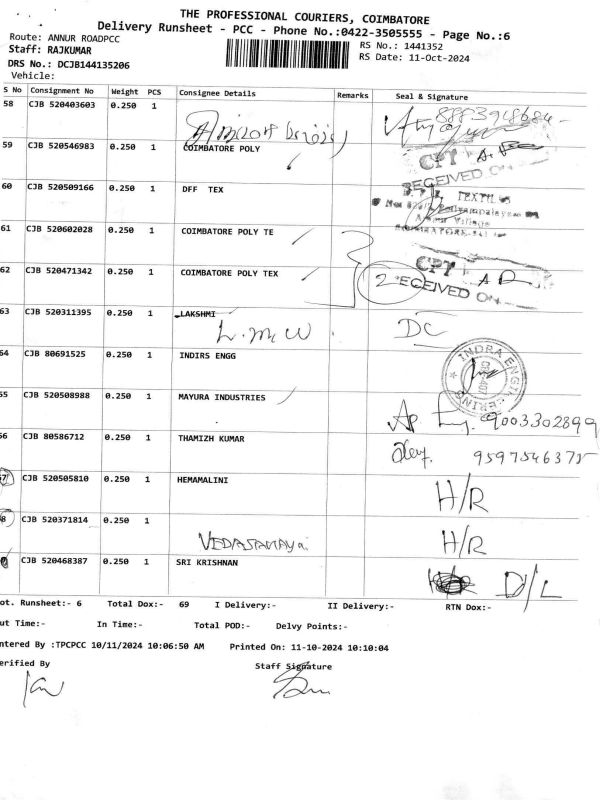 THE PROFESSIONAL COURIERS, COIMBATORE
Delivery Runsheet - PCC - Phone No.:0422-3505555 - Page No.:6
Route: ANNUR ROADPCC
RS No.: 1441352
Staff: RAJKUMAR
RS Date: 11-Oct-2024
DRS No.: DCJB144135206
Vehicle:
S No Consignment No Weight PCS Consignee Details Remarks Seal & Signature
58 CJB 520403603 0.250 1
59 CJB 520546983 0.250 1 COIMBATORE POLY
CPT
RECEIVED ON
60 CJB 520509166 0.250 1 DFF TEX
61 CJB 520602028 0.250 1 COIMBATORE POLY TE
62 CJB 520471342 0.250 1 COIMBATORE POLY TEX 2
CPT
RECEIVED ON
63 CJB 520311395 0.250 1 LAKSHMI DC
L.M.W
64 CJB 80691525 0.250 1 INDIRS ENGG
INDRA ENGINEERING
65 CJB 520508988 0.250 1 MAYURA INDUSTRIES
9003302899
66 CJB 80586712 0.250 1 THAMIZH KUMAR
9597546375
67 CJB 520505810 0.250 1 HEMAMALINI H/R
68 CJB 520371814 0.250 1 H/R
CJB 520468387 0.250 1 SRI KRISHNAN D/L
ot. Runsheet:- 6 Total Dox:- 69 I Delivery:- II Delivery:- RTN Dox:-
ut Time:- In Time:- Total POD:- Delvy Points:-
ntered By :TPCPCC 10/11/2024 10:06:50 AM Printed On: 11-10-2024 10:10:04
erified By Staff Signature